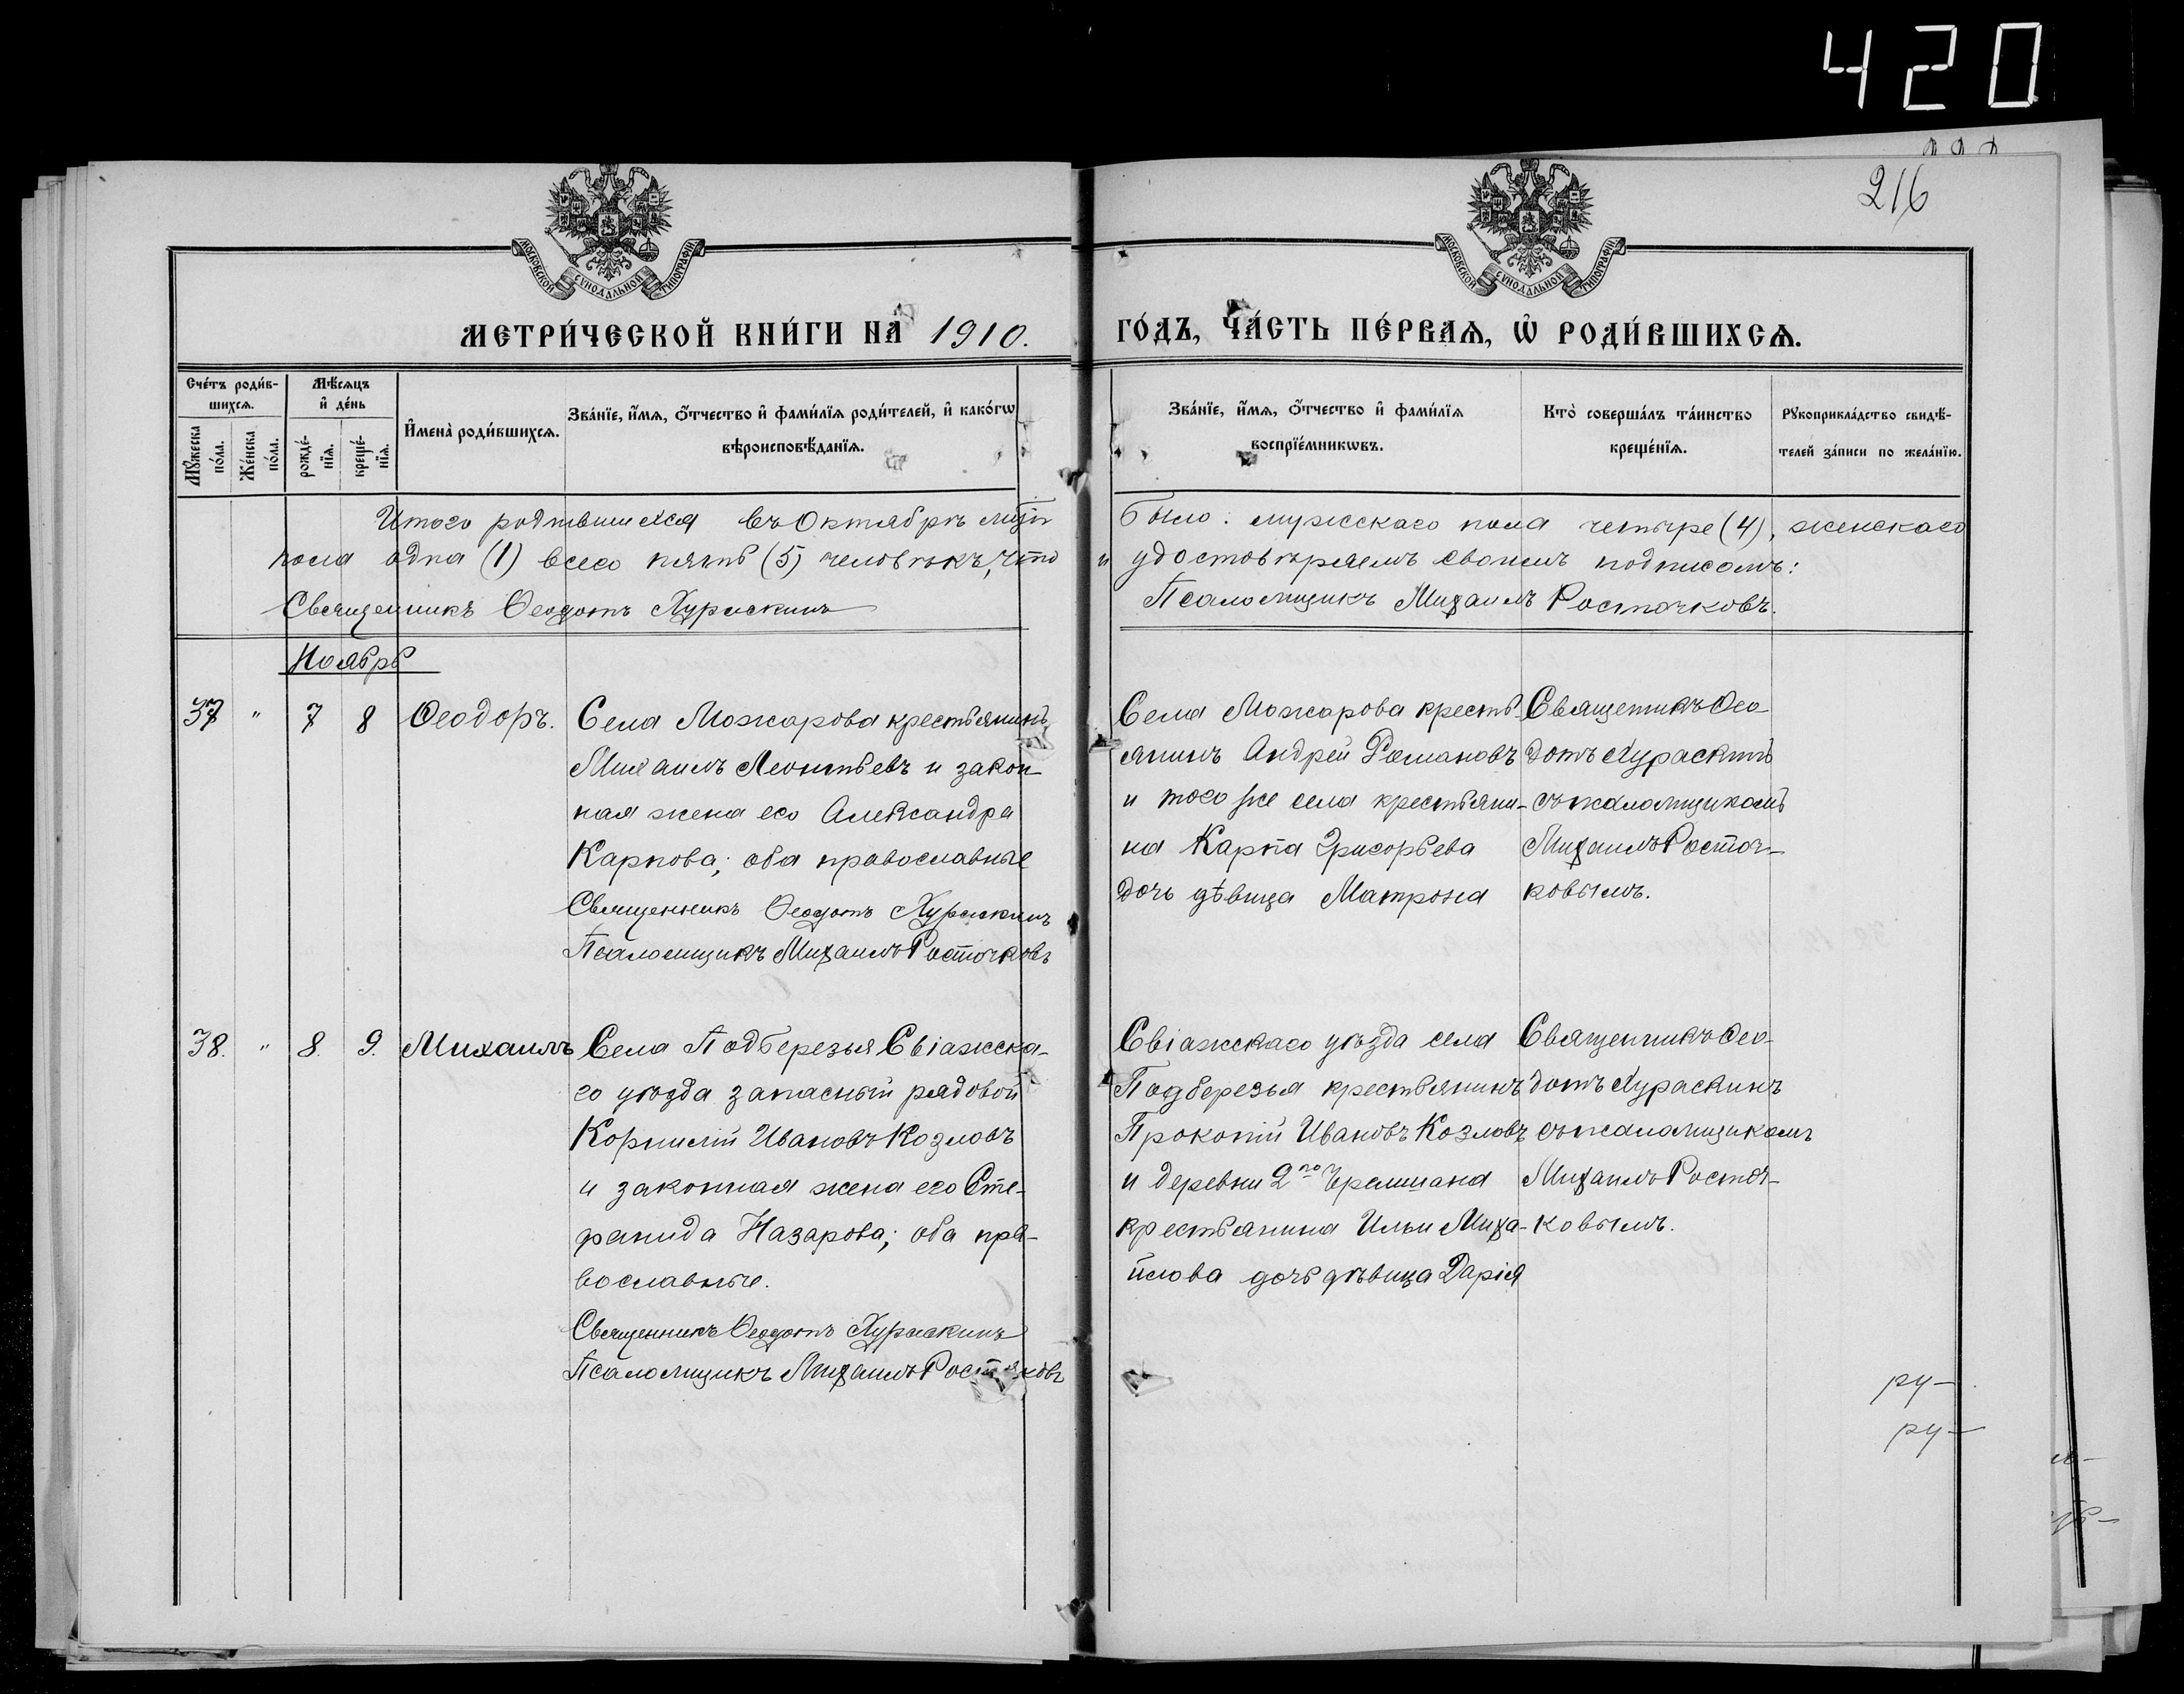 420
216
МОСКОВСКОЙ СУНОДАЛЬНОЙ ТИПОГРАФІИ
МОСКОВСКОЙ СУНОДАЛЬНОЙ ТИПОГРАФІИ
МЕТРИ́ЧЕСКОЙ КНИ́ГИ НА 1910. ГО́ДЪ, ЧА́СТЬ ПЕ́РВАѦ, Ѡ РОДИ́ВШИХСѦ.
Сче́тъ роди́в-
шихсѧ.
Мꙋ́жеска
по́ла.
Же́нска
по́ла.
Мѣ́сѧцъ
и҆ де́нь
рожде́-
нїѧ.
креще́-
нїѧ.
И҆мена̀ роди́вшихсѧ.
Зва́нїе, и҆́мѧ, ѻ҆́тчество и҆ фами́лїѧ роди́телей, и҆ како́гѡ
вѣроисповѣ́данїѧ.
Зва́нїе, и҆́мѧ, ѻ҆́тчество и҆ фами́лїѧ
воспрїе́мникѡвъ.
Кто̀ соверша́лъ та́инство
креще́нїѧ.
Рꙋкоприкла́дство свидѣ́-
телей за́писи по жела́нїю.
Итого родившихся въ Октябрѣ было: мужскаго пола четыре (4), женскаго
пола одна (1) всего пять (5) человѣкъ, что и удостовѣряемъ своимъ подписомъ:
Священникъ Ѳеодотъ Хураскинъ Псаломщикъ Михаилъ Росточковъ.
Ноябрь
37 " 7 8 Ѳеодоръ.
Села Можарова крестьянинъ
Михаилъ Леонтьевъ и закон-
ная жена его Александра
Карпова; оба православные
Священникъ Ѳеодотъ Хураскинъ
Псаломщикъ Михаилъ Росточковъ
Села Можарова кресть-
янинъ Андрей Романовъ
и того же села крестьяни-
на Карпа Григорьева
дочь дѣвица Матрона
Священникъ Ѳео-
дотъ Хураскинъ
съ псаломщикомъ
Михаилъ Росточ-
ковымъ.
38. " 8. 9. Михаилъ
Села Подберезья Свіажска-
го уѣзда запасный рядовой
Корнилій Ивановъ Козловъ
и законная жена его Сте-
фанида Назарова; оба пра-
вославные.
Священникъ Ѳеодотъ Хураскинъ
Псаломщикъ Михаилъ Росточковъ
Свіажскаго уѣзда села
Подберезья крестьянинъ
Прокопій Ивановъ Козловъ
и деревни 2го
крестьянина Ильи Миха-
йлова дочь дѣвица Дарія
Священникъ Ѳео-
дотъ Хураскинъ
съ псаломщикомъ
Михаилъ Росточ-
ковымъ.
ру-
ру-